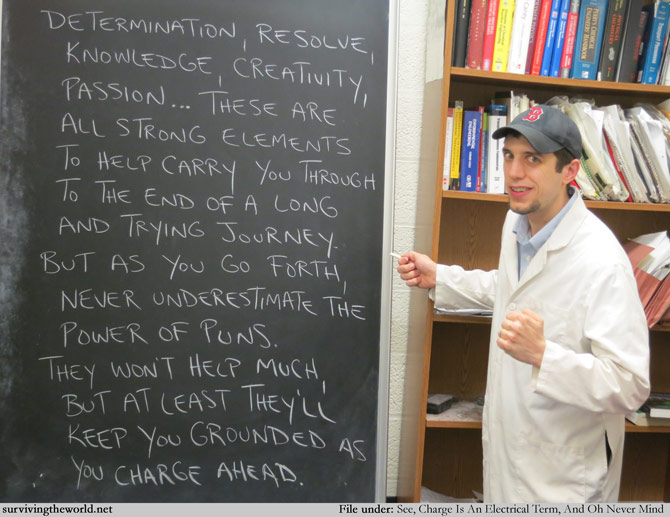 DETERMINATION, RESOLVE,
KNOWLEDGE, CREATIVITY,
PASSION... THESE ARE
ALL STRONG ELEMENTS
TO HELP CARRY YOU THROUGH
TO THE END OF A LONG
AND TRYING JOURNEY.
BUT AS YOU GO FORTH,
NEVER UNDERESTIMATE THE
POWER OF PUNS.
THEY WON'T HELP MUCH,
BUT AT LEAST THEY'LL
KEEP YOU GROUNDED AS
YOU CHARGE AHEAD.
B
survivingtheworld.net
File under: See, Charge Is An Electrical Term, And Oh Never Mind